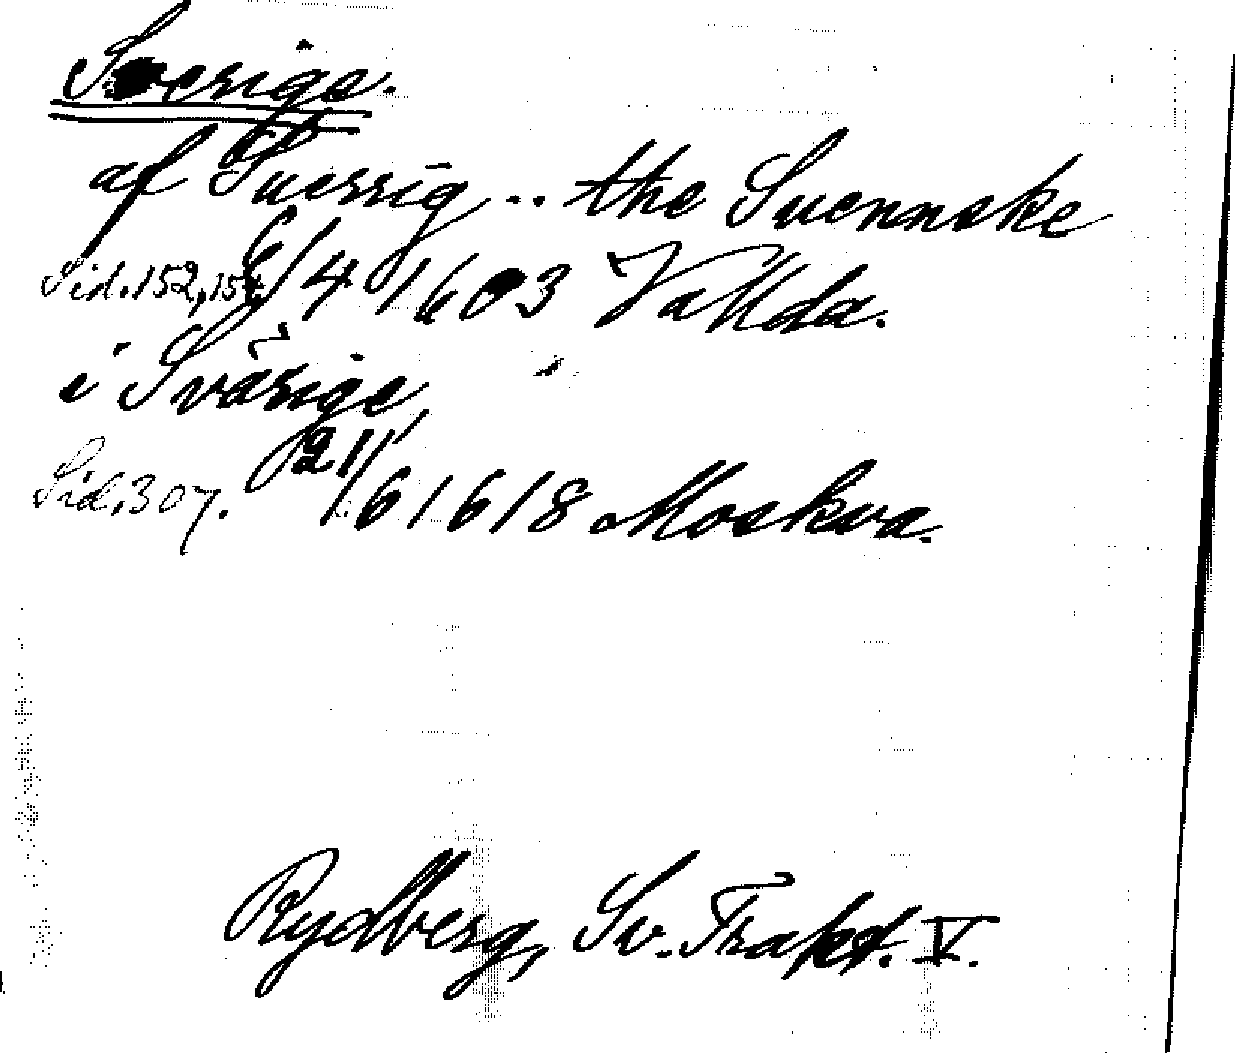 Sverige.
af Suerrig .. the Suennske
Sid. 152, 154. 6/4 1603 Vallda.
i Svärige,
Sid. 307. 21/6 1618 Moskva.
Rydberg, Sv. Trakt. V.